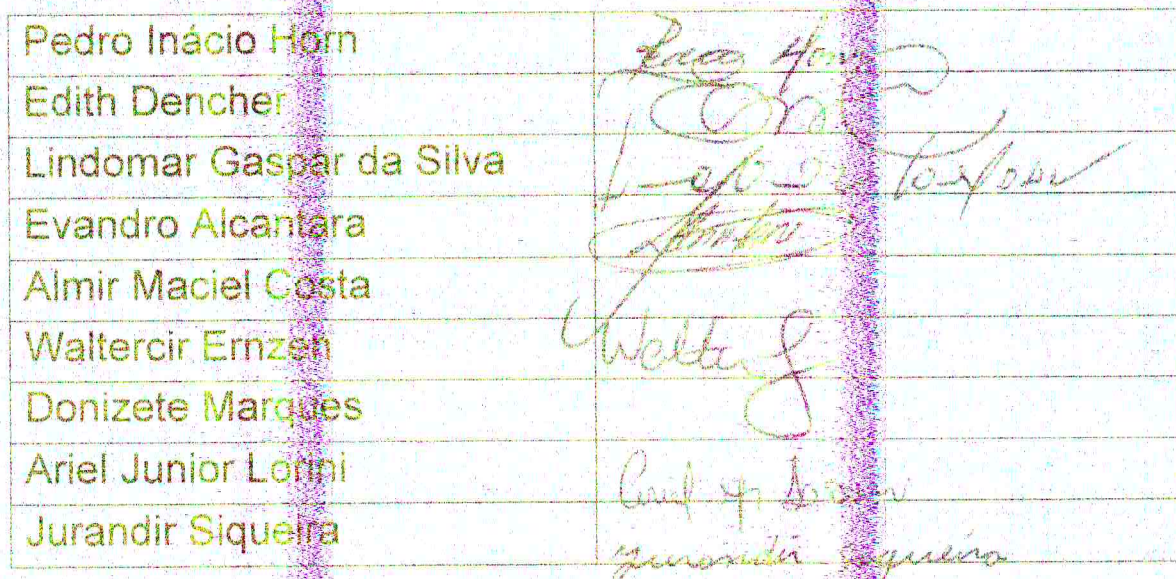 Pedro Inácio Horn
Edith Dencher
Lindomar Gaspar da Silva
Evandro Alcantara
Almir Maciel Costa
Waltercir Ernzen Walter
Donizete Marques
Ariel Junior Lorini
Jurandir Siqueira Jurandir Siqueira